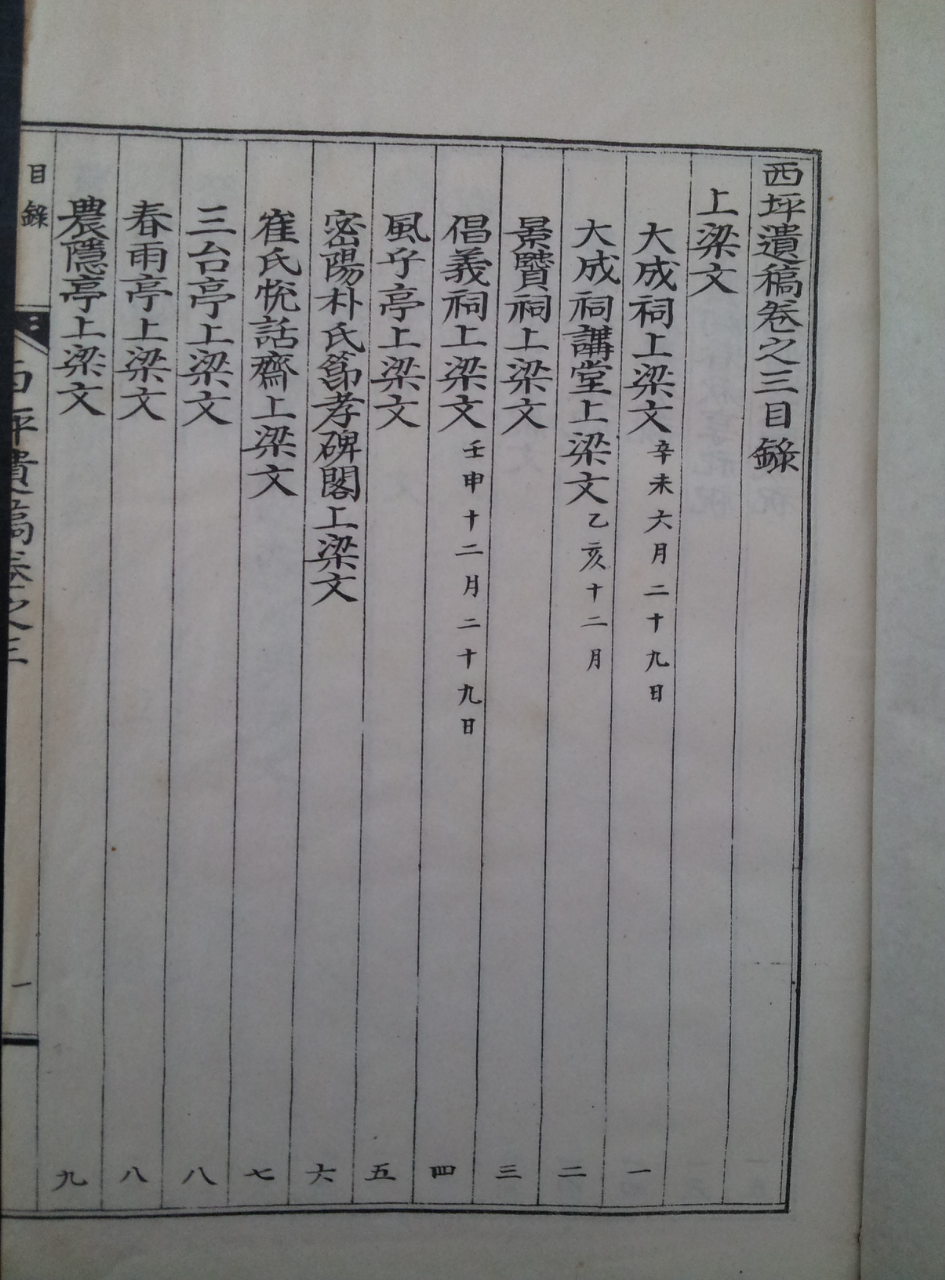 西坪遺稿卷之三目錄
上梁文
大成祠上梁文 辛未六月二十九日 一
大成祠講堂上梁文 乙亥十二月 二
景贒祠上梁文 三
倡義祠上梁文 壬申十二月二十九日 四
風乎亭上梁文 五
密陽朴氏節孝碑閣上梁文 六
崔氏悅話齋上梁文 七
三台亭上梁文 八
春雨亭上梁文 八
農隱亭上梁文 九
目錄
西坪遺稿卷之三
一